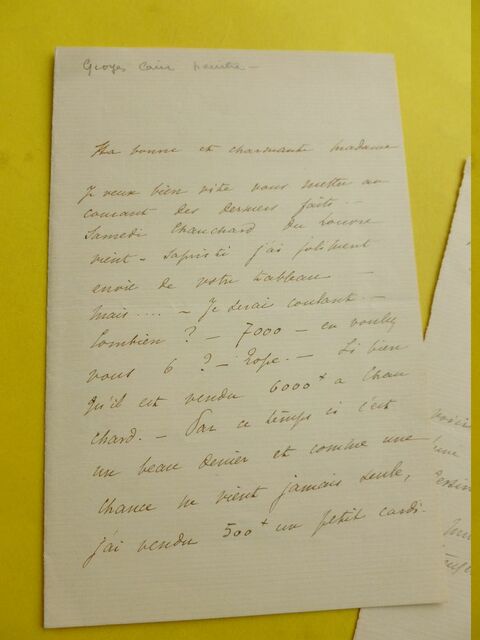 Georges Cain peintre —
Ma bonne et charmante madame
Je veux bien vite vous mettre au
courant des derniers faits. —
Samedi Chauchard du Louvre
vient — Sapristi j'ai joliment
envie de votre tableau —
Mais .... — Je serai coulant. —
Combien ? — 7000 — en voulez
vous 6 ? — — Si bien
qu'il est vendu 6000 a Chau
chard. — Par ce temps ci c'est
un beau denier et comme une
chance ne vient jamais seule,
j'ai vendu 500 un petit cardi-